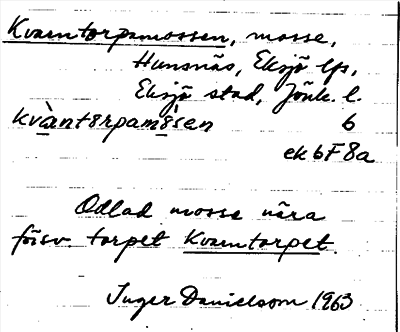 Kvarntorpsmossen, mosse,
Hunsnäs, Eksjö lfs,
Eksjö stad, Jönk. l.
kvàntərpamósen 6
ek 6F8a
Odlad mosse nära
försv. torpet Kvarntorpet.
Inger Danielsson 1963